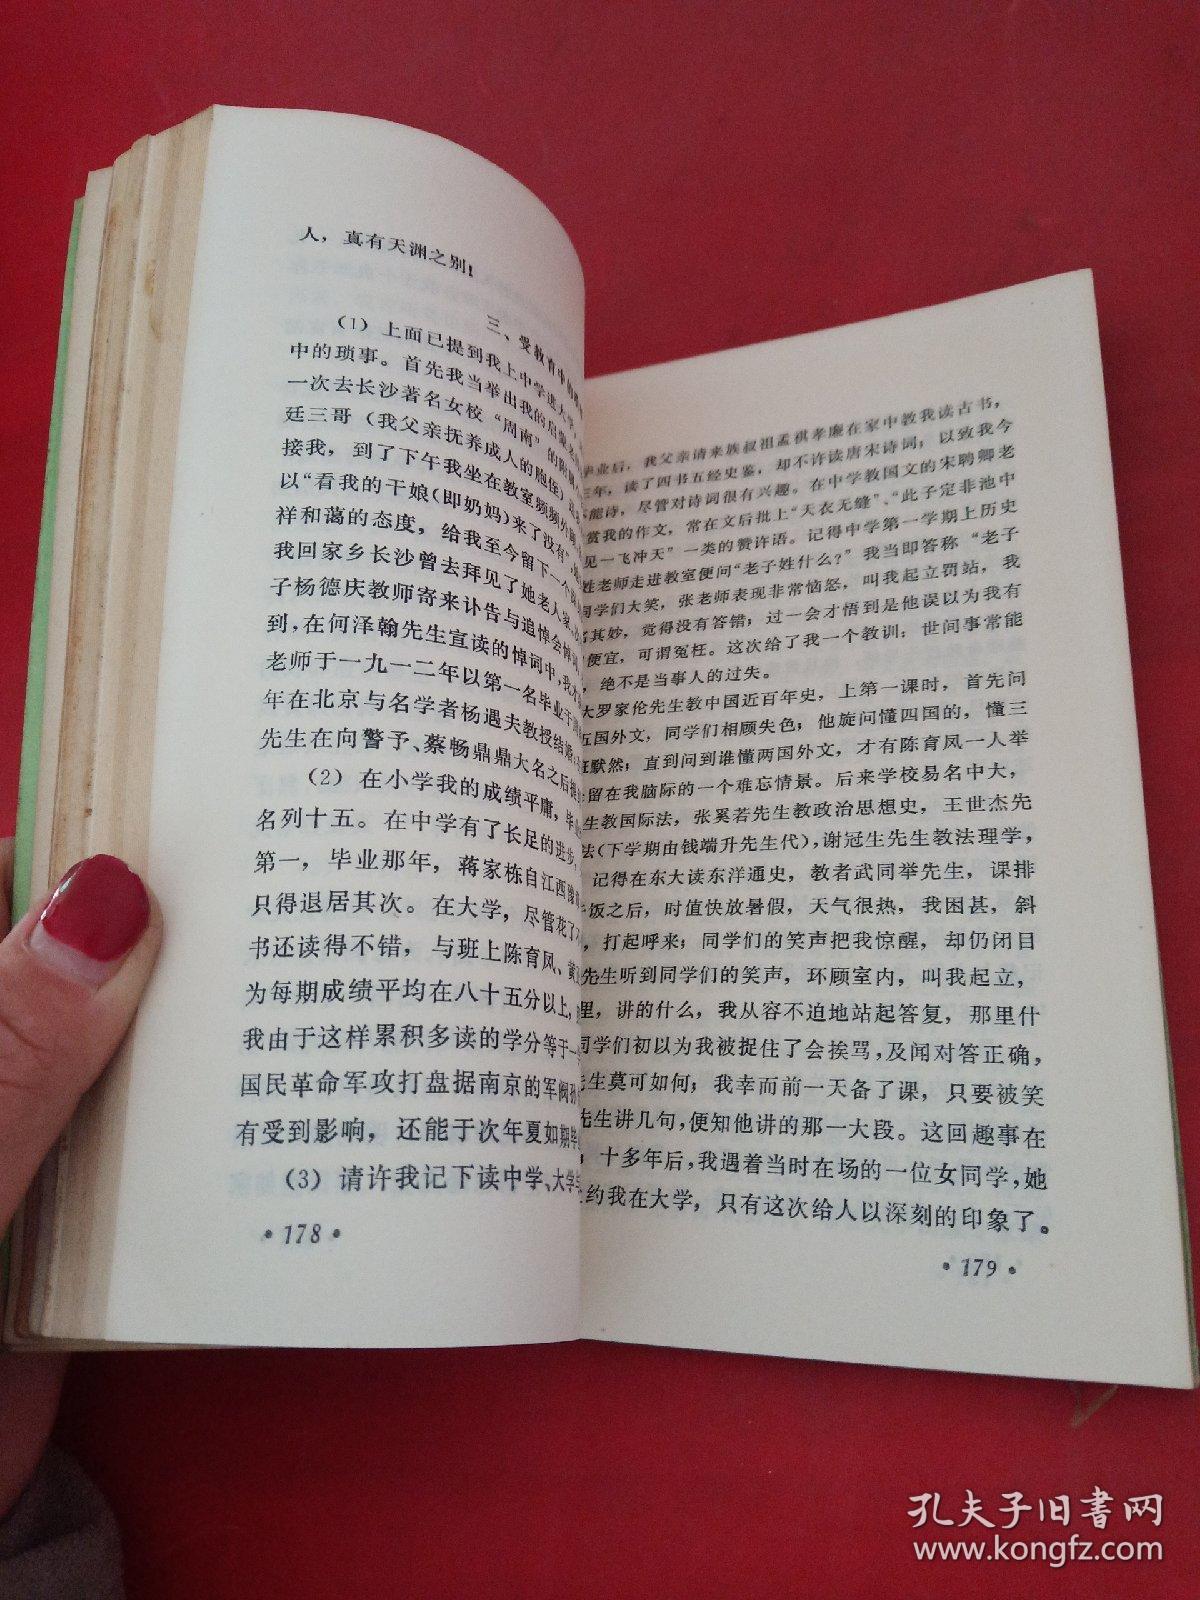 人，真有天渊之别！
三、受教育中的
（1）上面已提到我上中学进大学
中的琐事。首先我当举出我的启蒙老
一次去长沙著名女校“周南”的附
廷三哥（我父亲抚养成人的胞侄）
接我，到了下午我坐在教室频频外
以“看我的干娘（即奶妈）来了没有”，
祥和蔼的态度，给我至今留下一个
我回家乡长沙曾去拜见了她老人家
子杨德庆教师寄来讣告与追悼会悼词
到，在何泽翰先生宣读的悼词中，我才
老师于一九一二年以第一名毕业于
年在北京与名学者杨遇夫教授结婚
先生在向警予、蔡畅鼎鼎大名之后提
（2）在小学我的成绩平庸，毕
名列十五。在中学有了长足的进步，
第一，毕业那年，蒋家栋自江西
只得退居其次。在大学，尽管花了
书还读得不错，与班上陈育凤、黄
为每期成绩平均在八十五分以上，
我由于这样累积多读的学分等于一
国民革命军攻打盘据南京的军阀孙
有受到影响，还能于次年夏如期毕
（3）请许我记下读中学、大学
·178·
毕业后，我父亲请来族叔祖孟祺孝廉在家中教我读古书，
三年，读了四书五经史鉴，却不许读唐宋诗词；以致我今
不能诗，尽管对诗词很有兴趣。在中学教国文的宋聘卿老
赏我的作文，常在文后批上“天衣无缝”、“此子定非池中
见一飞冲天”一类的赞许语。记得中学第一学期上历史
姓老师走进教室便问“老子姓什么？”我当即答称“老子
同学们大笑，张老师表现非常恼怒，叫我起立罚站，我
名其妙，觉得没有答错；过一会才悟到是他误以为我有
便宜，可谓冤枉。这次给了我一个教训：世间事常能
，绝不是当事人的过失。
大罗家伦先生教中国近百年史，上第一课时，首先问
五国外文，同学们相顾失色；他旋问懂四国的，懂三
默然；直到问到谁懂两国外文，才有陈育凤一人举
留在我脑际的一个难忘情景。后来学校易名中大，
生教国际法，张奚若先生教政治思想史，王世杰先
法（下学期由钱端升先生代），谢冠生先生教法理学，
记得在东大读东洋通史，教者武同举先生，课排
饭之后，时值快放暑假，天气很热，我困甚，斜
，打起呼来；同学们的笑声把我惊醒，却仍闭目
先生听到同学们的笑声，环顾室内，叫我起立，
里，讲的什么，我从容不迫地站起答复，那里什
同学们初以为我被捉住了会挨骂，及闻对答正确，
先生莫可如何；我幸而前一天备了课，只要被笑
先生讲几句，便知他讲的那一大段。这回趣事在
十多年后，我遇着当时在场的一位女同学，她
约我在大学，只有这次给人以深刻的印象了。
·179·
孔夫子旧书网
www.kongfz.com